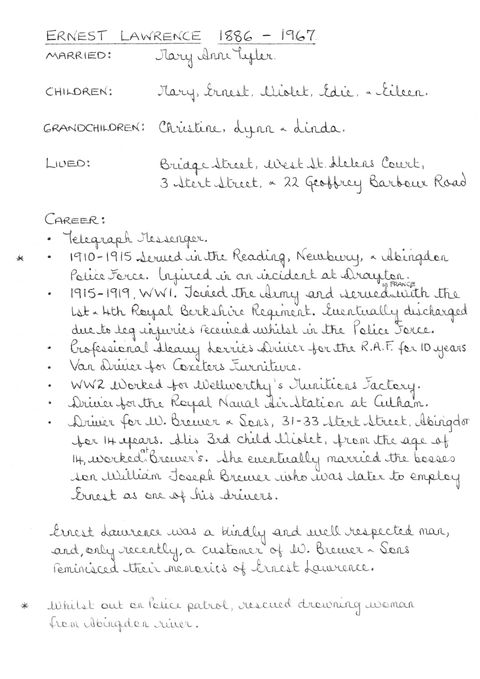 ERNEST LAWRENCE 1886 - 1967
MARRIED: Mary Anne Tyler.
CHILDREN: Mary, Ernest, Violet, Edie, & Eileen.
GRANDCHILDREN: Christine, Lynn & Linda.
LIVED: Bridge Street, West St. Helens Court,
3 Stert Street, & 22 Geoffrey Barbour Road
CAREER:
• Telegraph Messenger.
* • 1910-1915 Served in the Reading, Newbury, & Abingdon
Police Force. Injured in an incident at Drayton.
• 1915-1919, WW1. Joined the Army and served IN FRANCE with the
1st & 4th Royal Berkshire Regiment. Eventually discharged
due to leg injuries received whilst in the Police Force.
• Professional Heavy Lorries Driver for the R.A.F. for 10 years
• Van Driver for Coxeters Furniture.
• WW2 Worked for Wellworthy's Munitions Factory.
• Driver for the Royal Naval Air Station at Culham.
• Driver for W. Brewer & Sons, 31-33 Stert Street, Abingdon
for 14 years. His 3rd child Violet, from the age of
14, worked at Brewer's. She eventually married the bosses
son William Joseph Brewer who was later to employ
Ernest as one of his drivers.
Ernest Lawrence was a kindly and well respected man,
and, only recently, a customer of W. Brewer & Sons
reminisced their memories of Ernest Lawrence.
* Whilst out on Police patrol, rescued drowning woman
from Abingdon river.